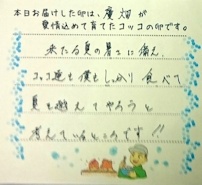 本日お届けした卵は、廣畑が
愛情込めて育てたコッコの卵です。
来たる夏の暑さに備え、
コッコ達も僕もしっかり食べて
夏を越えてやろうと
考えているところです!!